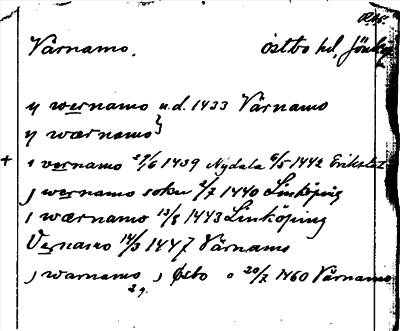 Värnamo. östbo hd, Jönk
y wernamo u.d. 1433 Värnamo
y wærnamo}
+ i vernamo 29/6 1439 Nydala 6/5 1442 Erikstad
j wernamo sokn 2/7 1440 Linköping
i wærnamo 13/8 1443 Linköping
Vernamo 14/3 1447 Värnamo
j warnamo j Østbo 20/7 1460 Värnamo